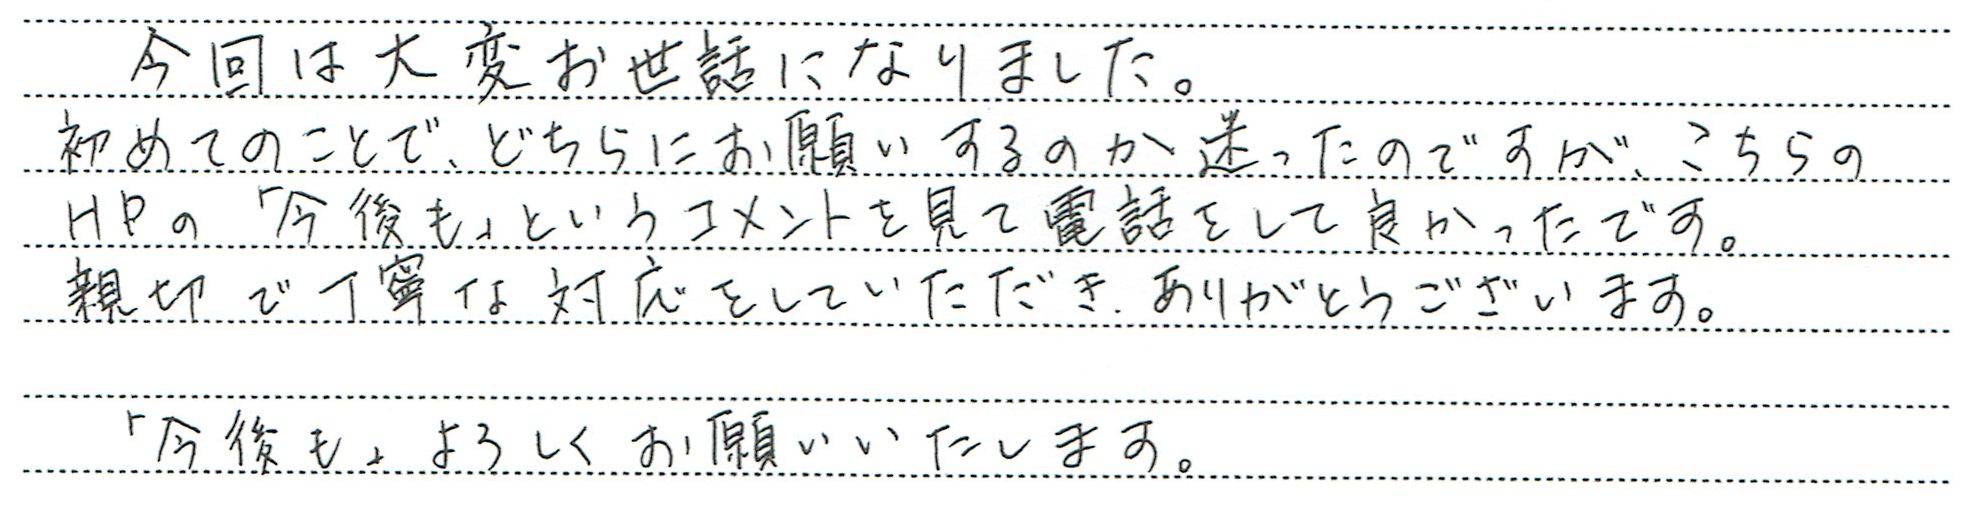 今回は大変お世話になりました。
初めてのことで、どちらにお願いするのか迷ったのですが、こちらの
HPの「今後も」というコメントを見て電話をして良かったです。
親切で丁寧な対応をしていただき、ありがとうございます。
「今後も」よろしくお願いいたします。